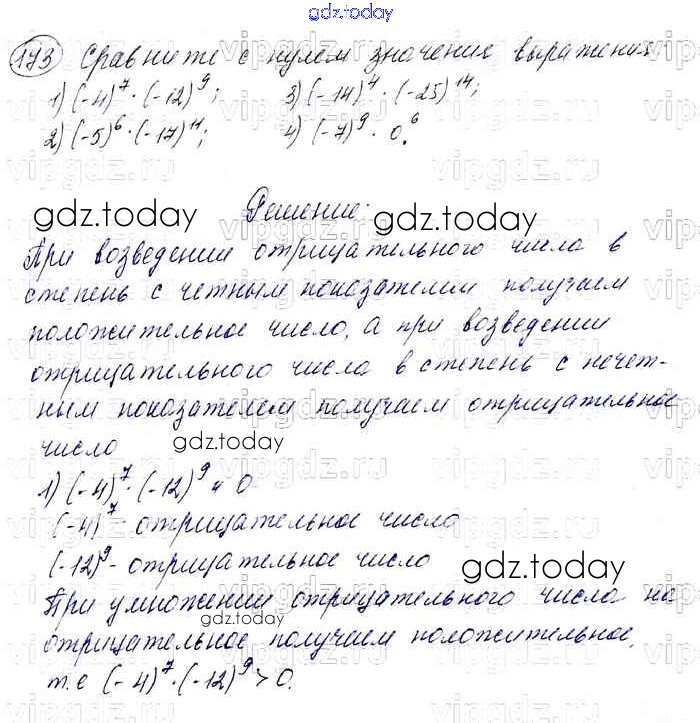 gdz.today
173 Сравните с нулем значения выражения
1) (-4)^7 · (-12)^9; 3) (-14)^4 · (-25)^14;
2) (-5)^6 · (-17)^11; 4) (-7)^9 · 0^6.
Решение:
gdz.today gdz.today
При возведении отрицательного числа в
степень с четным показателем получаем
положительное число, а при возведении
отрицательного числа в степень с нечет-
ным показателем получаем отрицательное
число
gdz.today
1) (-4)^7 · (-12)^9 и 0
(-4)^7 - отрицательное число
(-12)^9 - отрицательное число
gdz.today
При умножении отрицательного числа на
gdz.today
отрицательное получаем положительное,
т.е (-4)^7 · (-12)^9 > 0.